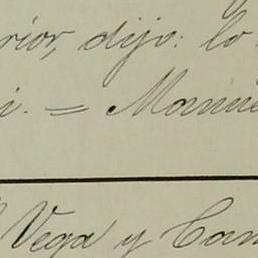 rior, dijo: lo
i. = Manue
Vega y Can